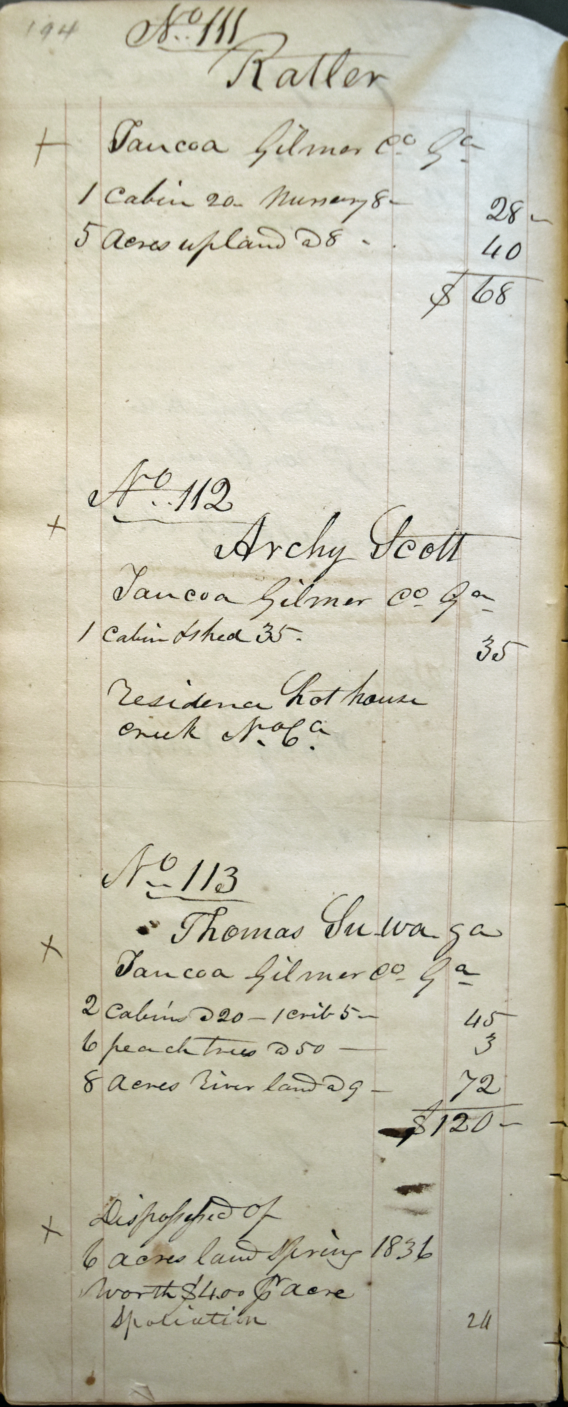 194
No. 111
Ratler
+ Taucoa Gilmer Co Ga
1 Cabin 20 - Nursery 8 - 28 -
5 Acres upland @ 8 - 40
$ 68
No. 112
+ Archy Scott
Taucoa Gilmer Co Ga
1 Cabin & shed 35 - 35
residence hot house
creek No. Ca.
No. 113
Thomas Su wa ga
+ Taucoa Gilmer Co Ga
2 Cabins @ 20 - 1 crib 5 - 45
6 peach trees @ 50 - 3
8 Acres River land @ 9 - 72
$120 -
Dispossessed of
+ 6 acres land Spring 1836
worth $4.00 pr acre
Spoliation 24